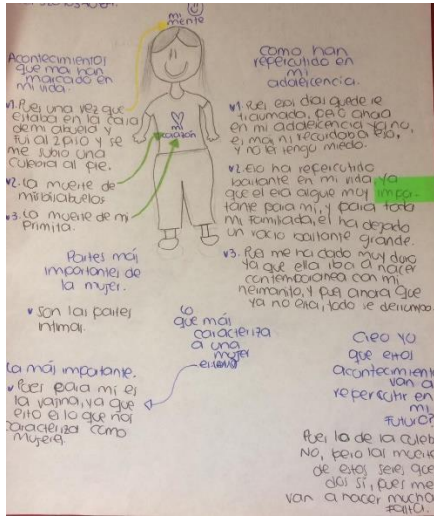 mi
mente
Acontecimientos
que ma han
marcado en
mi vida.
1. Pues una vez que
estaba en la casa
de mi abuela y
fui al 2 piso y se
me subio una
culebra al pie.
2. La muerte de
mis bisabuelos
3. La muerte de mi
primita.
mi
corazón
Como han
repercutido en
mi
adolescencia.
1. Pues, esos dias quede re
traumada, pero ahora
en mi adolescencia ya no,
es mas ni recuerdo eso,
y no les tengo miedo.
2. Eso ha repercutido
bastante en mi vida, ya
que el era alguie muy impor-
tante para mi, y para toda
mi familiada, el ha dejado
un vacio bastante grande.
3. Pues me ha dado muy duro
ya que ella iba a nacer
contemporanea con mi
hermanito, y pues ahora que
ya no esta, todo se derrumbo
Partes más
importantes de
la mujer.
son las partes
intimas.
Lo
que más
caracteriza
a una
mujer
es
La más importante.
Pues para mi es
la vagina, ya que
esto es lo que nos
caracteriza como
mujeres.
Creo yo
que estos
acontecimient
van a
repercutir en
mi
Futuro?
Pues la de la culeb
NO, pero las muerte
de estos seres que
dos si, pues me
van a hacer mucha
Falta.